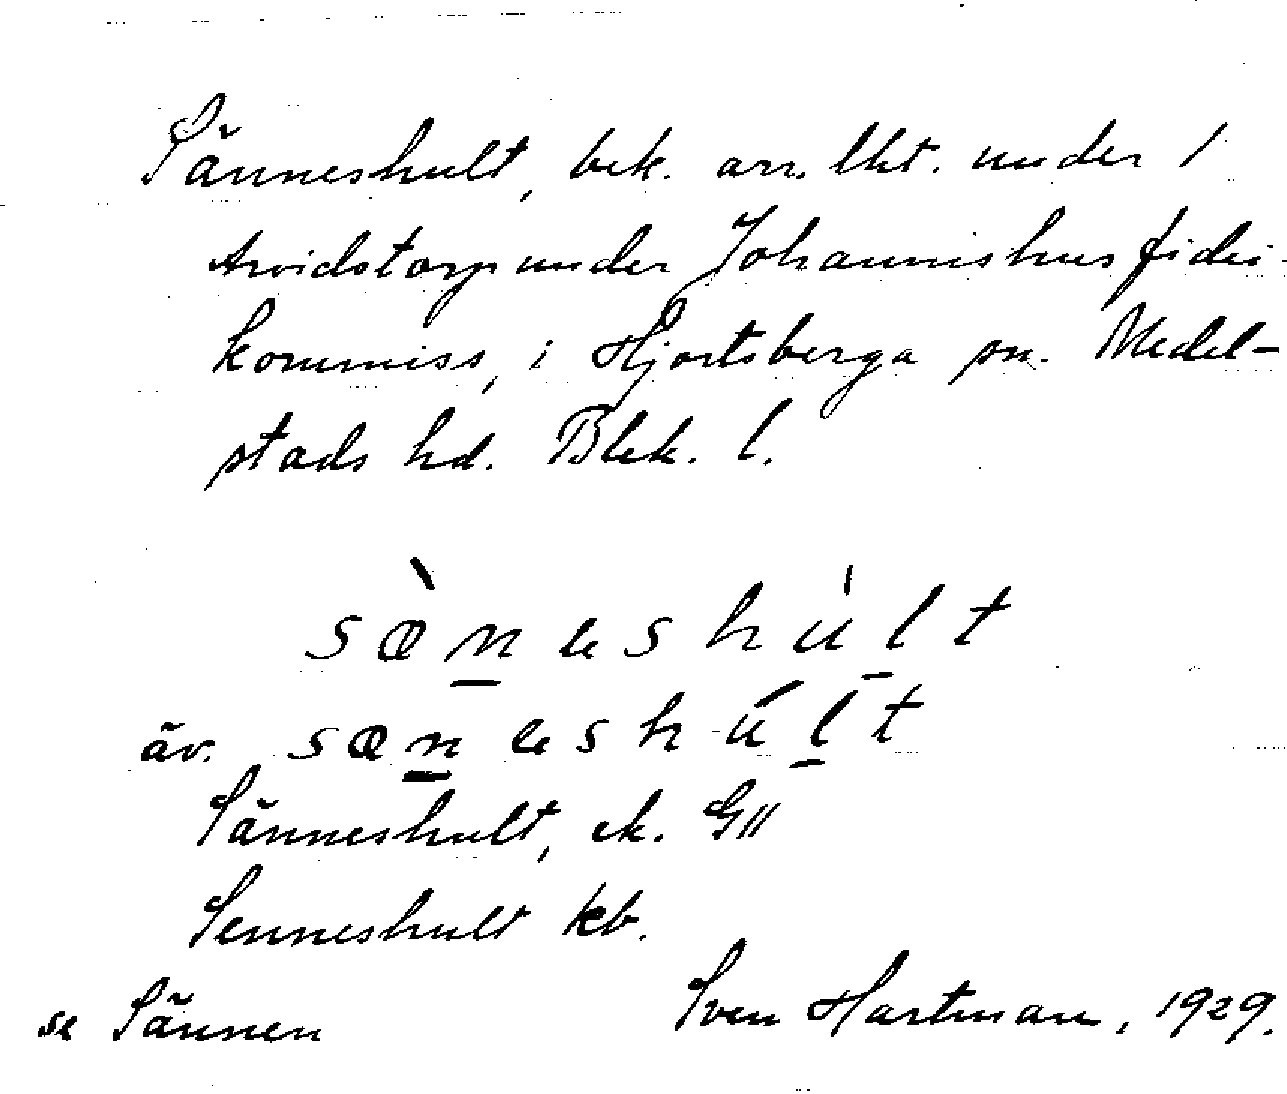 Sänneshult, bek. arr. lht. under 1
Arvidstorp under Johannishus fidei-
kommiss, i Hjortsberga sn. Medel-
stads hd. Blek. l.
sæ̀n̲eshu̍l̲t
äv. sæn̲eshúl̲t
Sänneshult, ek. G11
Senneshult kb.
se Sännen Sven Hartman, 1929.